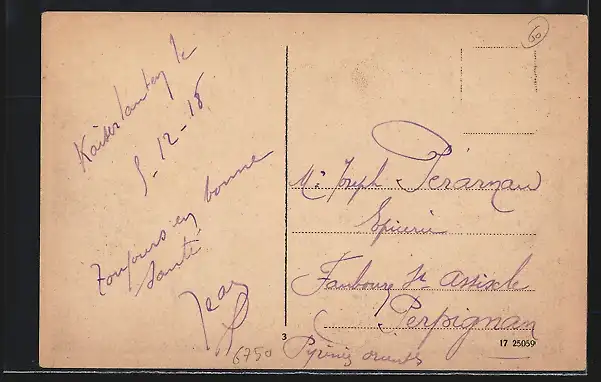 Kaiserlautern le
5-12-18
Toujours en bonne
santé
Jean
6750
60
Mr Joseph Pérarnau
Epicerie
Faubourg St Assiscle
Perpignan
Pyrénées orientales
3
17 25059